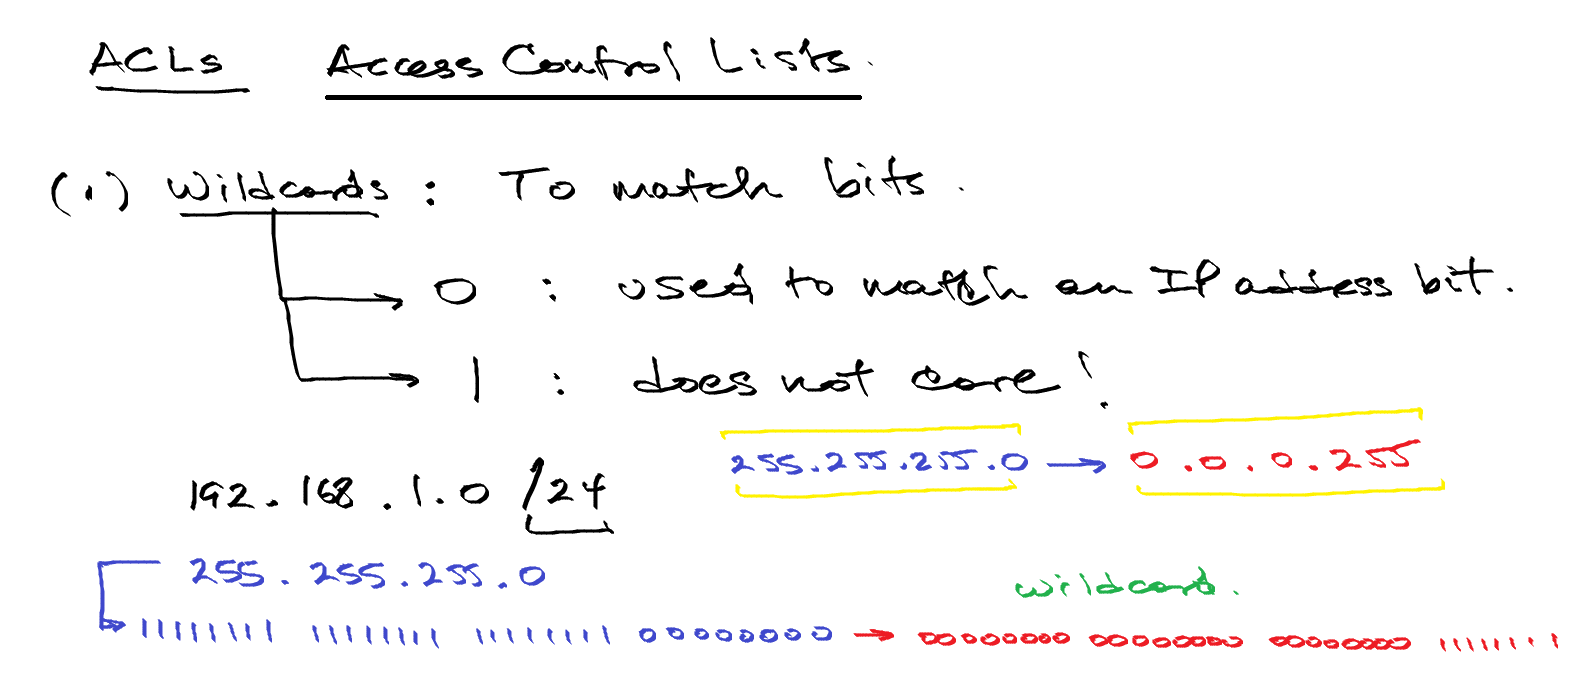 ACLs Access Control Lists.
(1) Wildcards : To match bits.
0 : used to match an IP address bit.
1 : does not care!
255.255.255.0 → 0.0.0.255
192.168.1.0 /24
255.255.255.0
wildcard.
11111111 11111111 11111111 00000000 → 00000000 00000000 00000000 11111111